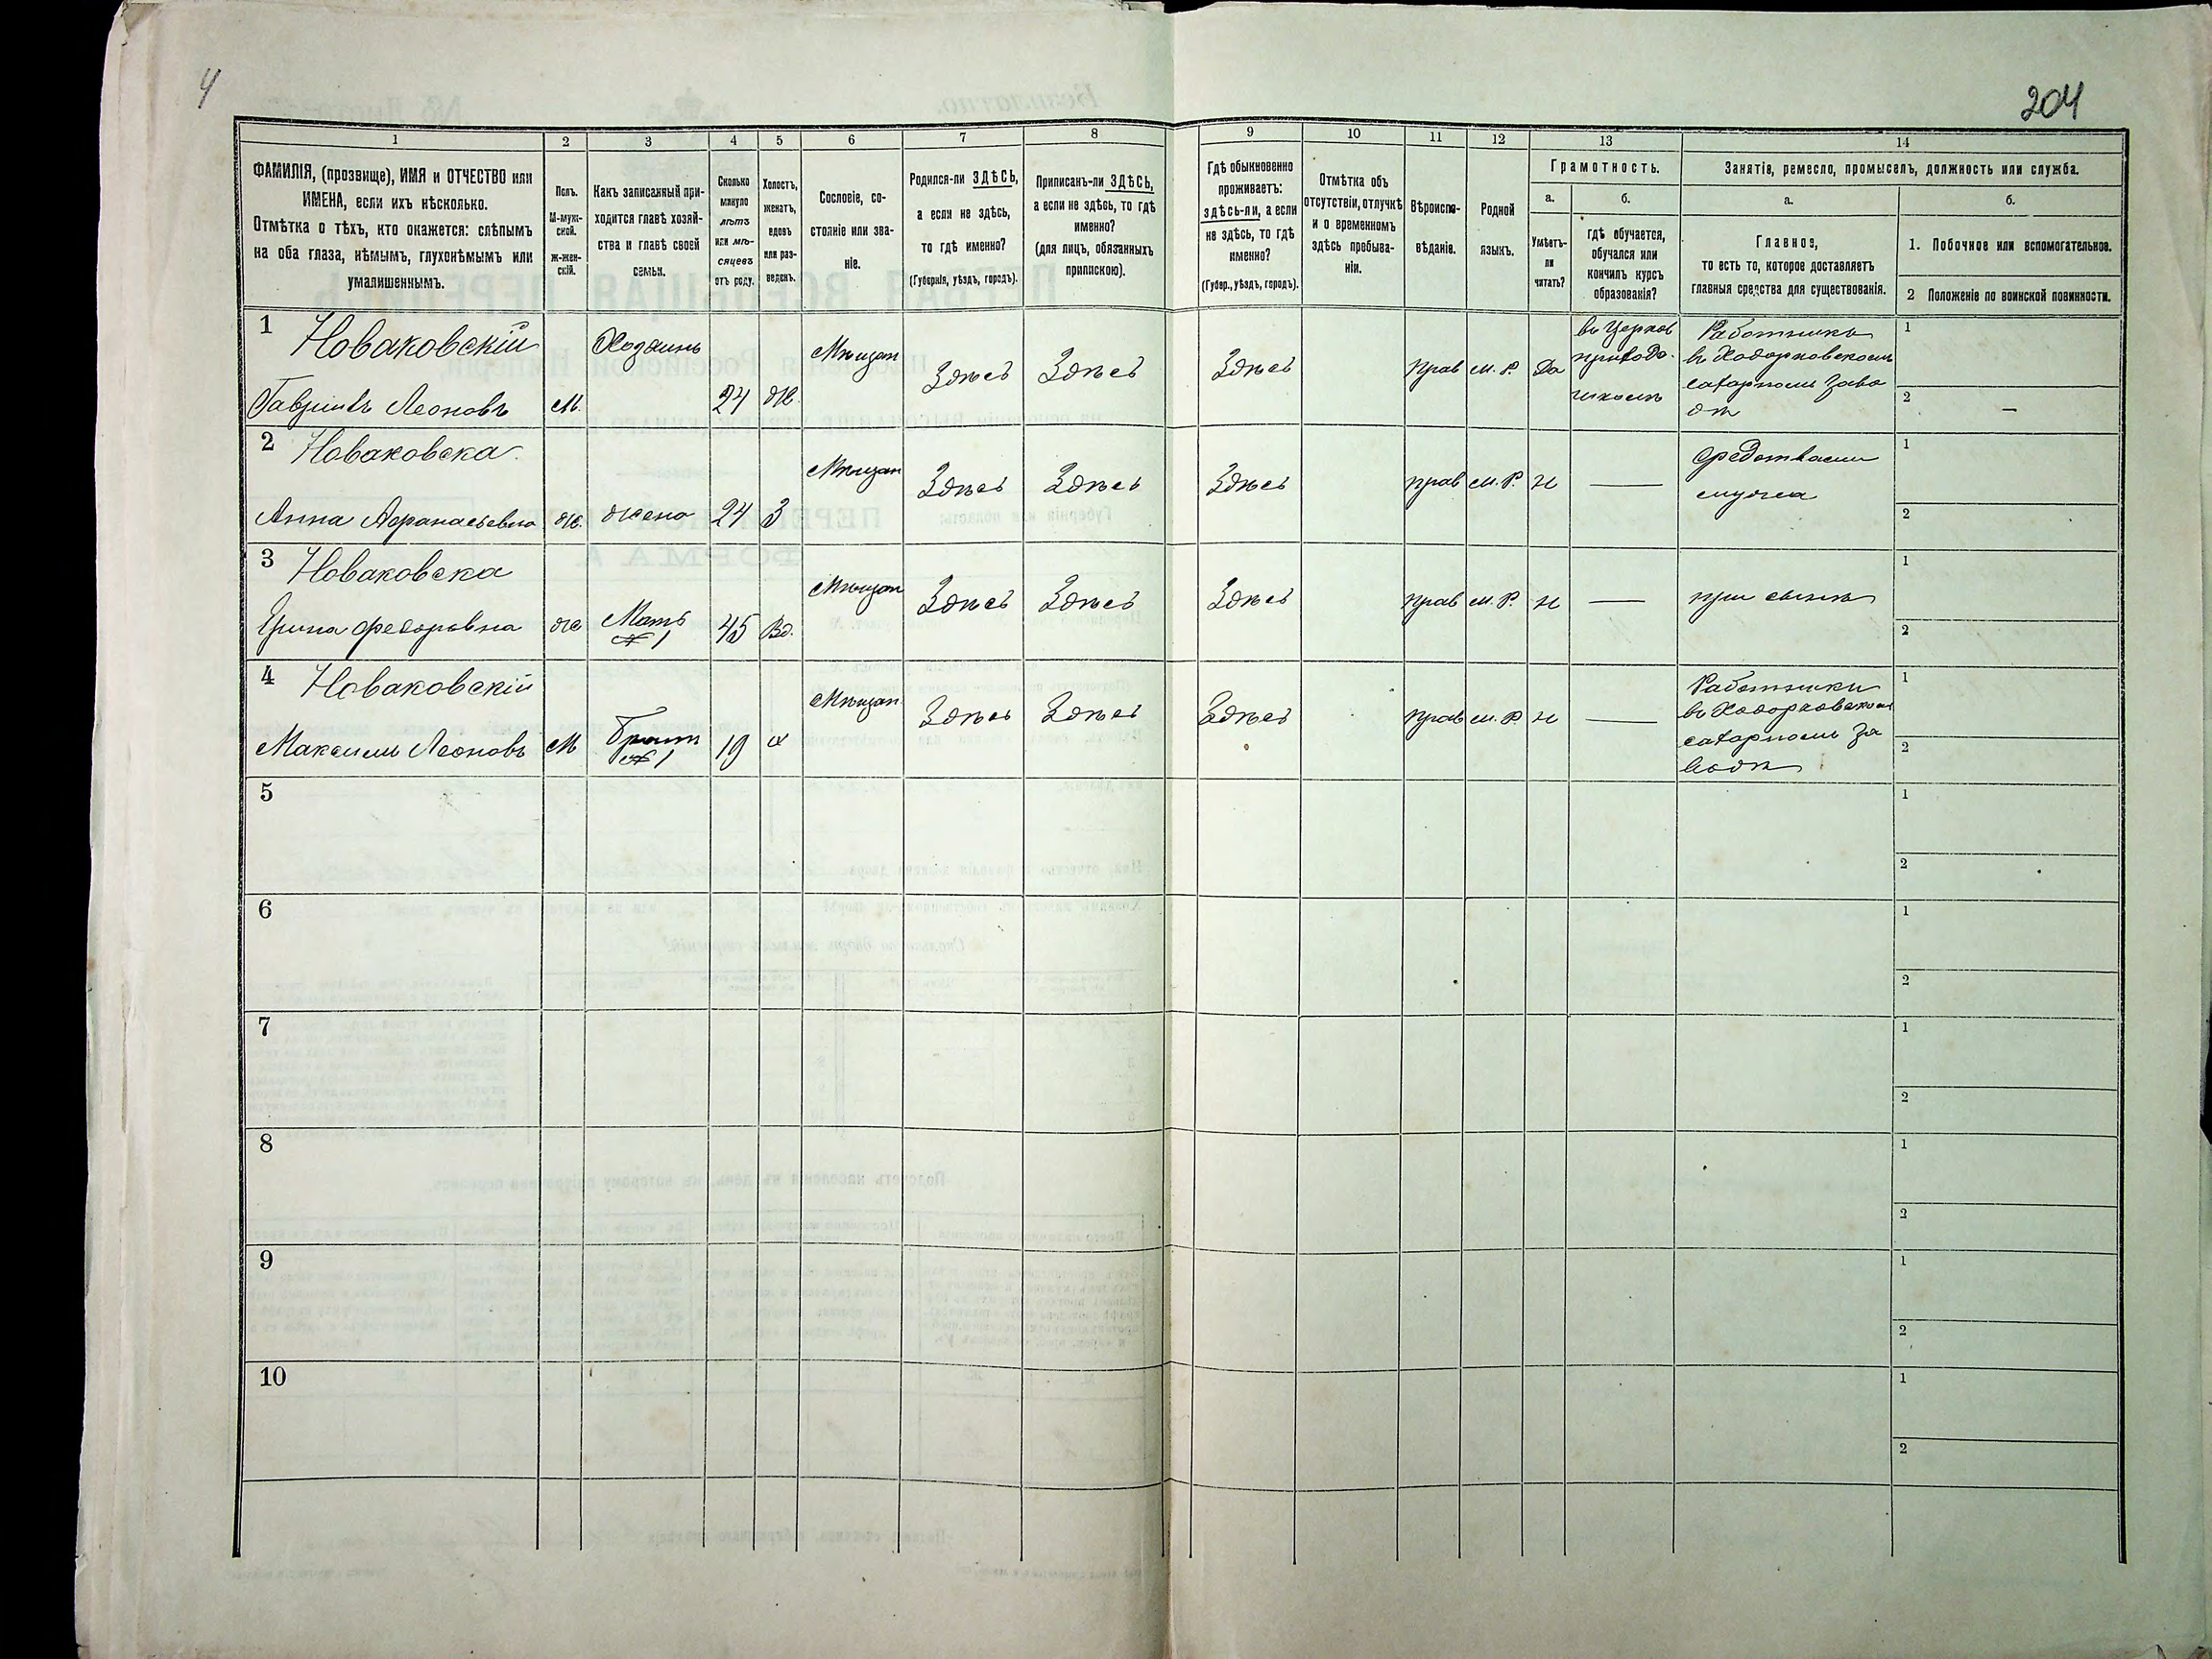 4
204
1
2
3
4
5
6
7
8
9
10
11
12
13
14
ФАМИЛІЯ, (прозвище), ИМЯ и ОТЧЕСТВО или
ИМЕНА, если ихъ нѣсколько.
Отмѣтка о тѣхъ, кто окажется: слѣпымъ
на оба глаза, нѣмымъ, глухонѣмымъ или
умалишеннымъ.
Полъ.
М-муж-
ской.
Ж-жен-
скій.
Какъ записанный при-
ходится главѣ хозяй-
ства и главѣ своей
семьи.
Сколько
минуло
лѣтъ
или мѣ-
сяцевъ
отъ роду.
Холостъ,
женатъ,
вдовъ
или раз-
веденъ.
Сословіе, со-
стояніе или зва-
ніе.
Родился-ли ЗДѢСЬ,
а если не здѣсь,
то гдѣ именно?
(Губернія, уѣздъ, городъ).
Приписанъ-ли ЗДѢСЬ,
а если не здѣсь, то гдѣ
именно?
(для лицъ, обязанныхъ
припискою).
Гдѣ обыкновенно
проживаетъ:
здѣсь-ли, а если
не здѣсь, то гдѣ
именно?
(Губер., уѣздъ, городъ).
Отмѣтка объ
отсутствіи, отлучкѣ
и о временномъ
здѣсь пребыва-
ніи.
Вѣроиспо-
вѣданіе.
Родной
языкъ.
Грамотность.
а.
Умѣетъ-
ли
читать?
б.
гдѣ обучается,
обучался или
кончилъ курсъ
образованія?
Занятія, ремесло, промыселъ, должность или служба.
а.
Главное,
то есть то, которое доставляетъ
главныя средства для существованія.
б.
1. Побочное или вспомогательное.
2 Положеніе по воинской повинности.
1 Новаковскій
Гавріилъ Леоновъ
М.
Хозяинъ
24
Ж.
Мѣщан
Здѣсь
Здѣсь
Здѣсь
Прав
М.Р.
Да
въ Церков
приходс.
школѣ
Работникъ
въ Ходорковскомъ
сахарномъ заво
дѣ
1
2 —
2 Новаковска
Анна Афанасьевна
Ж.
жена
24
З
Мѣщан
Здѣсь
Здѣсь
Здѣсь
прав
М.Р.
Н
—
Средствами
мужа
1
2
3 Новаковска
Ирина Федоровна
Ж
Мать
№ 1
45
Вд.
Мѣщан
Здѣсь
Здѣсь
Здѣсь
прав
М.Р.
Н
—
при сынѣ
1
2
4 Новаковскій
Максимъ Леоновъ
М
Братъ
№ 1
19
Х
Мѣщан
Здѣсь
Здѣсь
Здѣсь
прав
М.Р.
Н
—
Работники
въ Ходорковском
сахарномъ За
водѣ
1
2
5
1
2
6
1
2
7
1
2
8
1
2
9
1
2
10
1
2